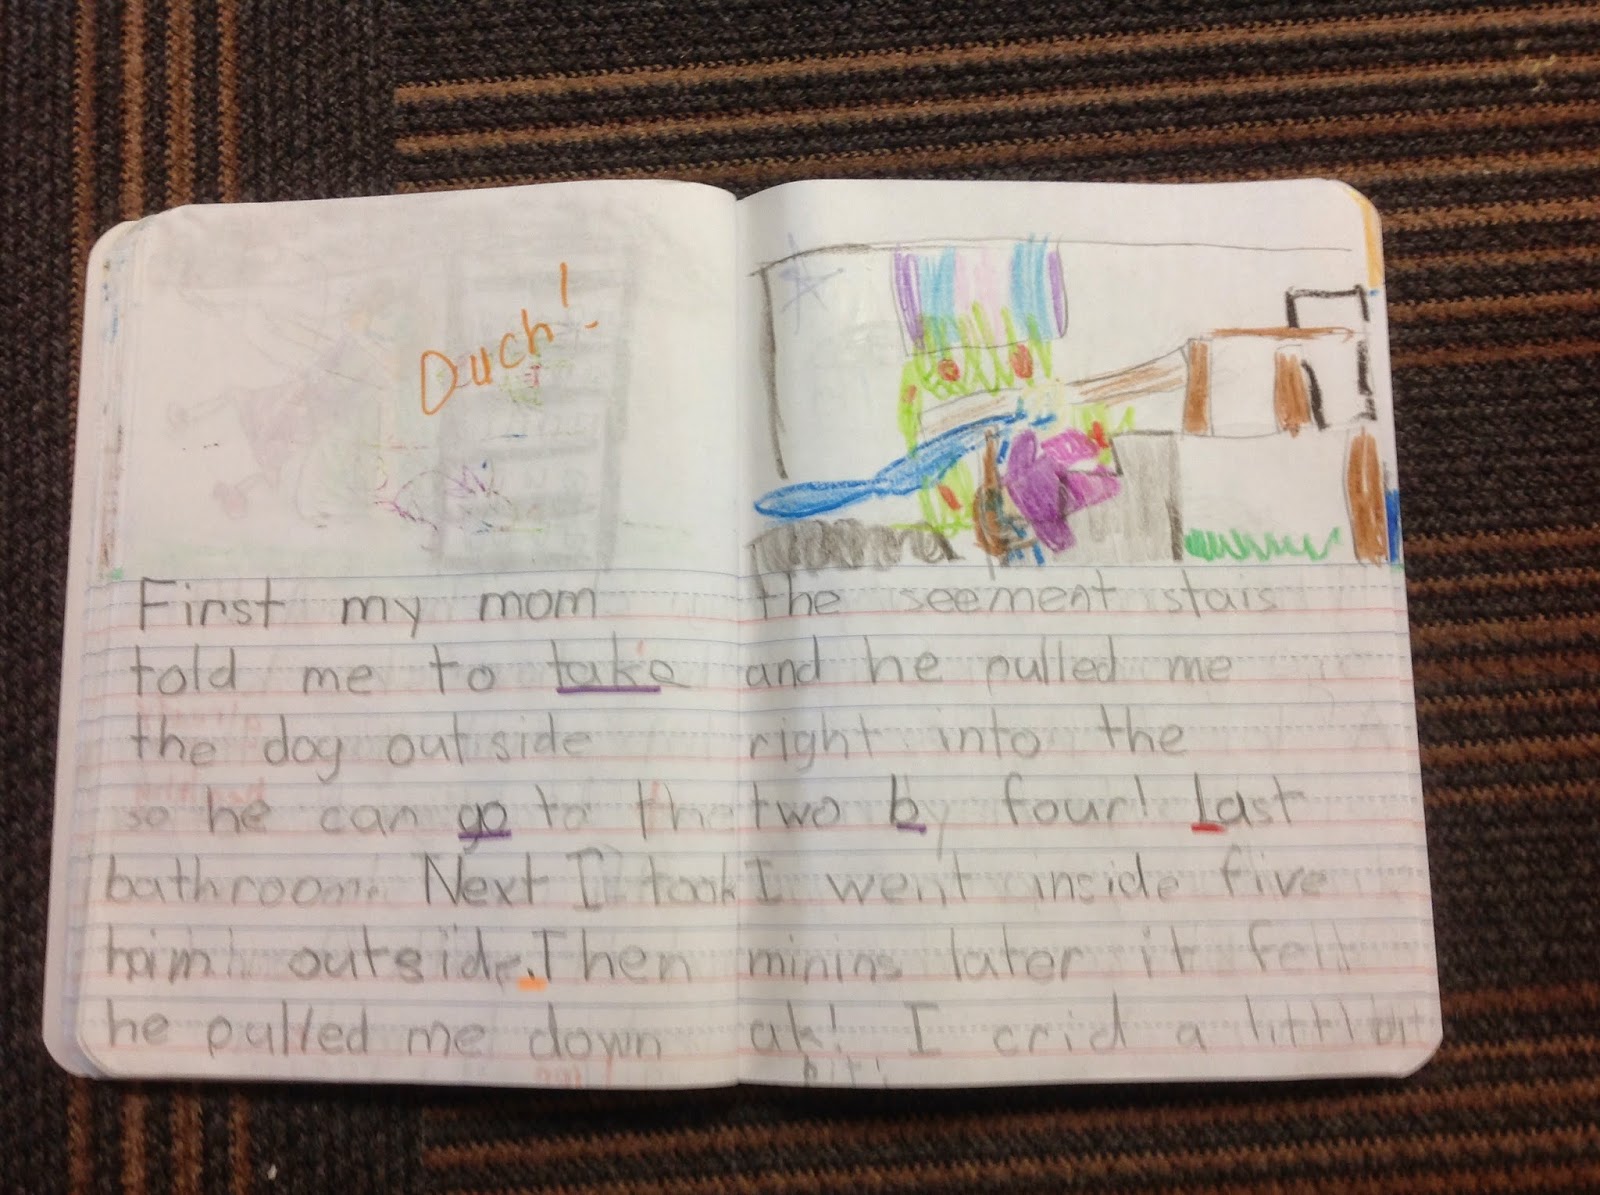 Ouch!
First my mom
told me to take
the dog outside
so he can go to the
bathroom. Next I took
him outside. Then
he pulled me down
the seement stais
and he pulled me
right into the
two by four! Last
I went inside five
minins later it felt
ok! I crid a littl bit
bit!